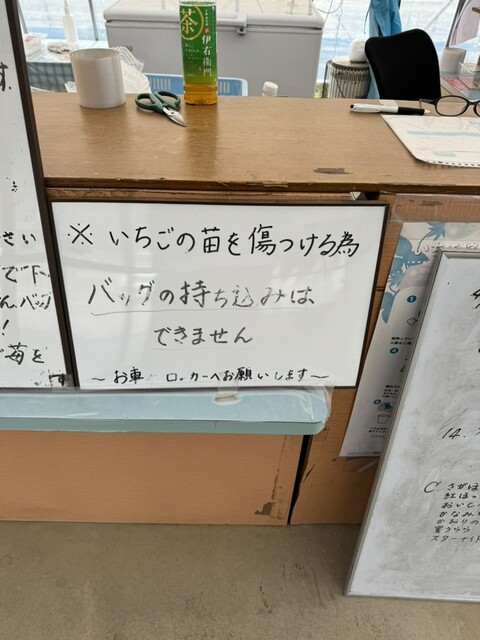 茶
伊右衛門
※ いちごの苗を傷つける為
バッグの持ち込みは
できません
～お車 ロッカーへお願いします～
す。
さい
で下
んバッ
！
苺を
14.
C. さがほ
紅ほっ
おいしい
かなみ
かおりの
星うらら
スターナイト